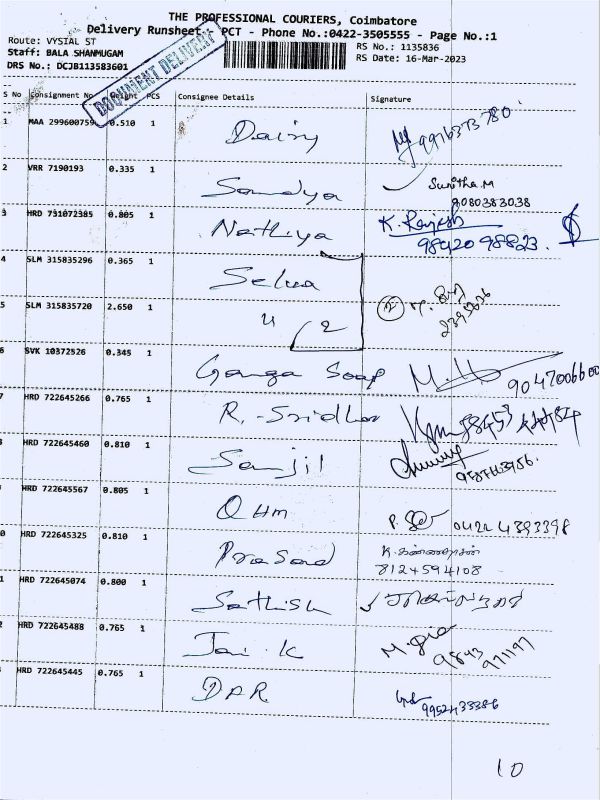 THE PROFESSIONAL COURIERS, Coimbatore
Delivery Runsheet - PCT - Phone No.:0422-3505555 - Page No.:1
Route: VYSIAL ST
RS No.: 1135836
Staff: BALA SHANMUGAM
RS Date: 16-Mar-2023
DRS No.: DCJB113583601
DOCUMENT DELIVERY
S No Consignment No Weight PCS Consignee Details Signature
1 MAA 299600759 0.510 1 Dairy 9976373780
2 VRR 7190193 0.335 1 Sandya Sunitha.M
9080383038
3 HRD 731072385 0.805 1 Nathiya K. Rajesh
98420 98823.
4 SLM 315835296 0.365 1 Selva
5 SLM 315835720 2.650 1 " 2 2
2395636
6 SVK 10372526 0.345 1 Ganga Soap 9047006600
7 HRD 722645266 0.765 1 R. Sridhar
HRD 722645460 0.810 1 Sanjil
HRD 722645567 0.805 1 OHM P. 0422 4393398
0 HRD 722645325 0.810 1 Prasand K.
8124594108
1 HRD 722645074 0.800 1 Sathish
2 HRD 722645488 0.765 1 Jai. K M.
9843
971197
HRD 722645445 0.765 1 DAR
9952433386
10